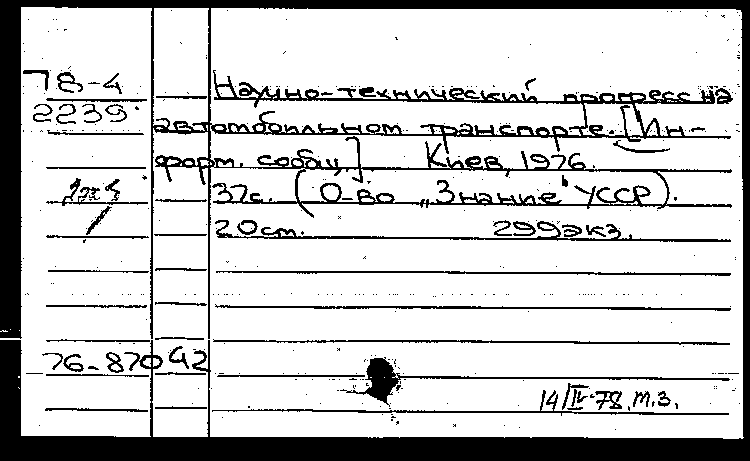 78-4
2239
Научно-технический прогресс на
автомобильном транспорте. [Ин-
форм. сообщ.] Киев, 1976.
37с. (О-во „Знание" УССР).
20см. 299экз.
76-87042
14/IV-78. т.з.